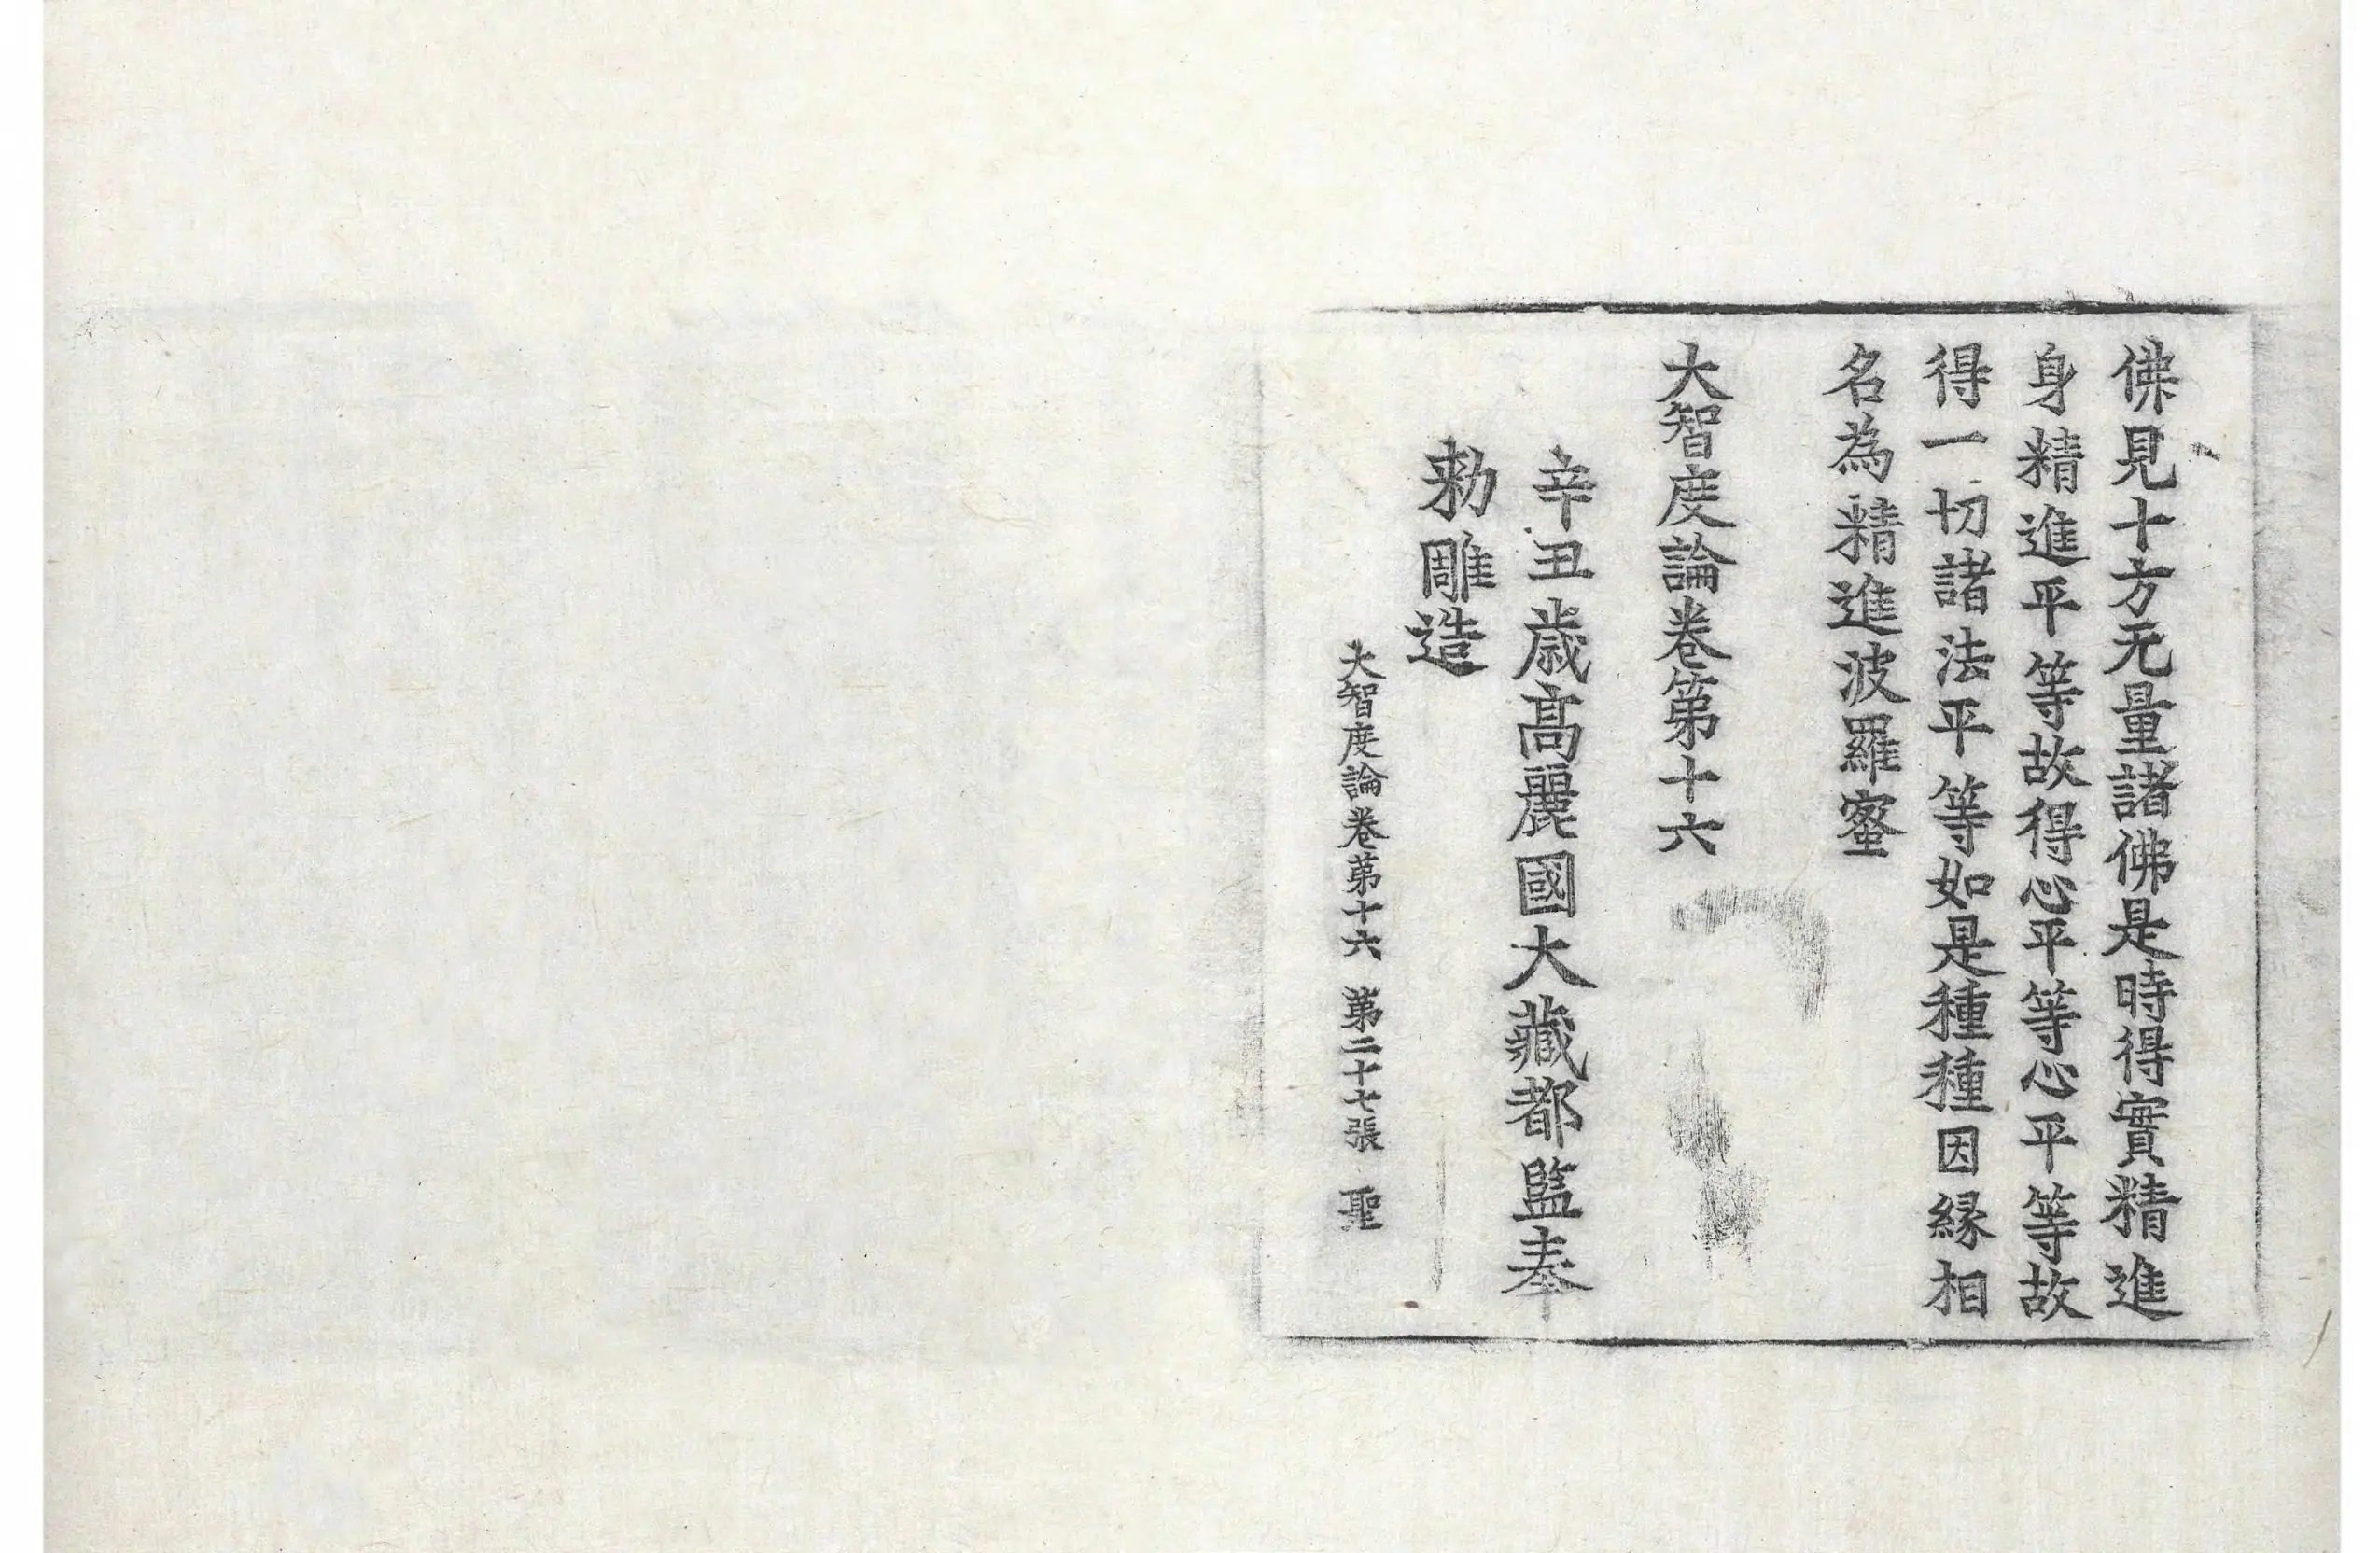 佛見十方无量諸佛是時得實精進
身精進平等故得心平等心平等故
得一切諸法平等如是種種因縁相
名為精進波羅蜜
大智度論卷第十六
辛丑歳高麗國大藏都監奉
勅雕造
大智度論卷第十六 第二十七張 聖